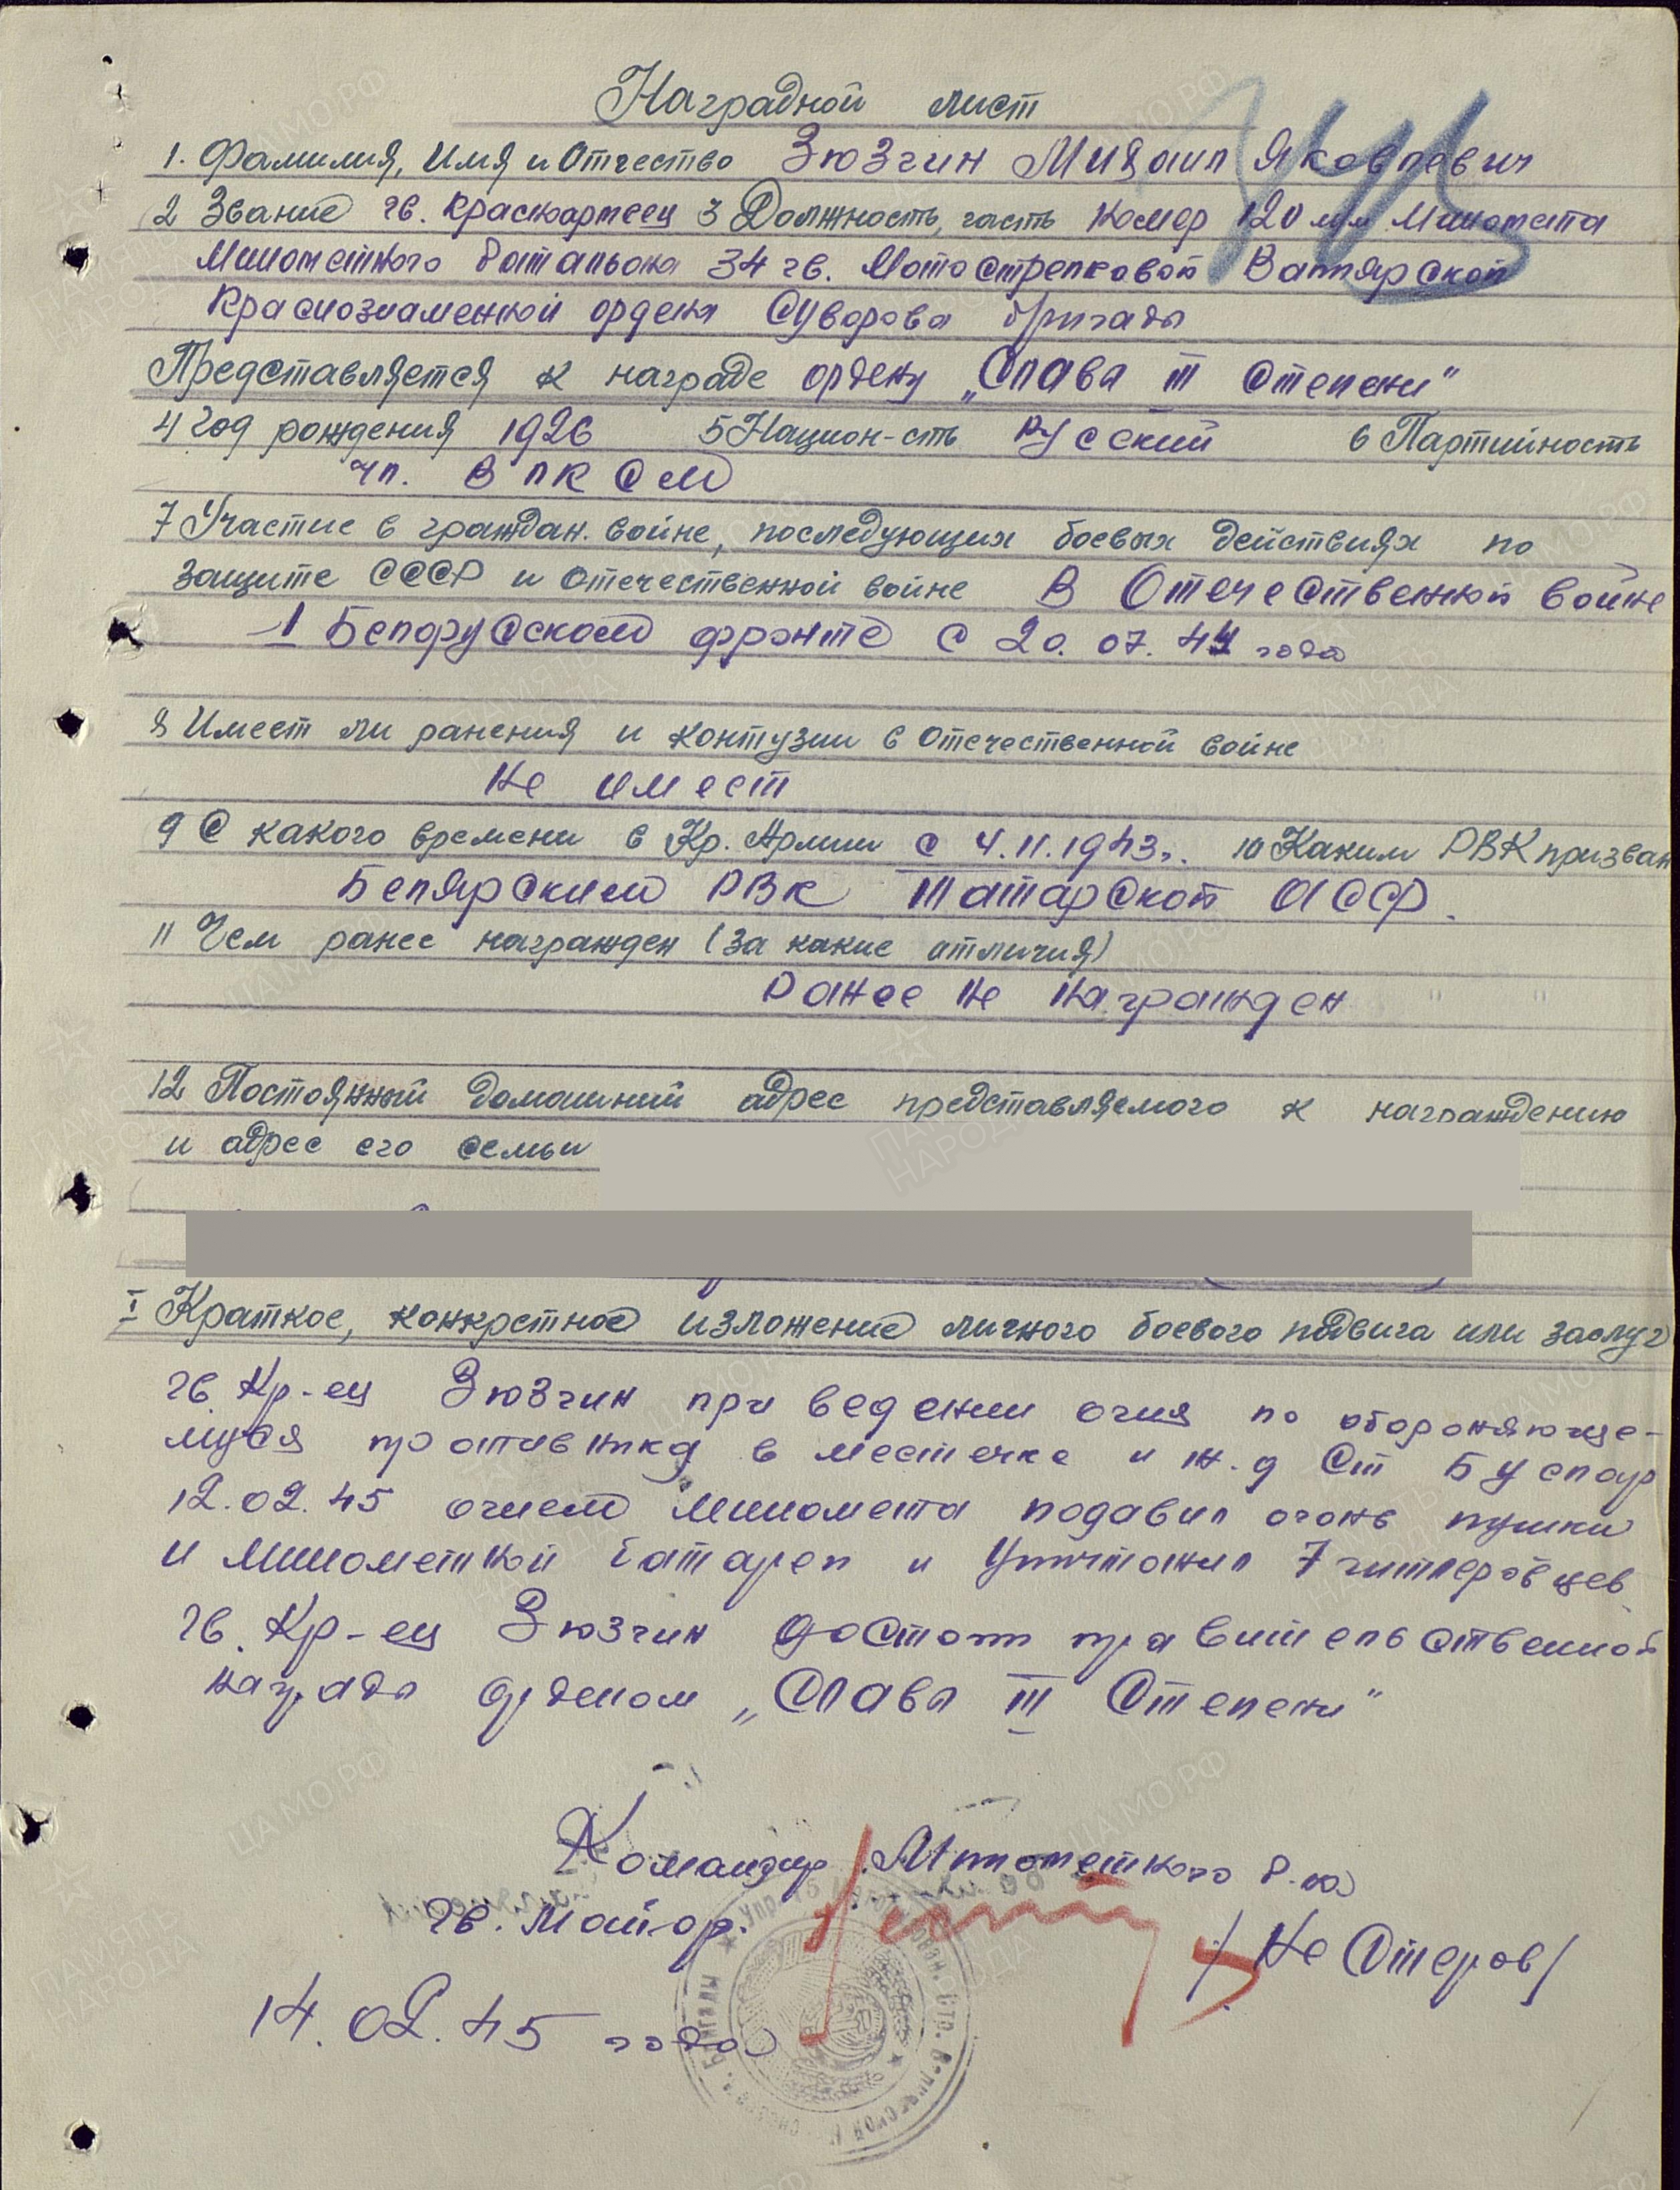 Наградной лист
1. Фамилия, Имя и Отчество Зюзгин Михаил Яковлевич
2 Звание гв. Красноармеец 3 Должность, часть Номер 120 мм Миномета
Минометного батальона 34 гв. Мотострелковой Вапнярской
Краснознаменной ордена Суворова бригады
Представляется к награде ордену „Слава III Степени"
4 Год рождения 1926 5 Национ-сть Русский 6 Партийность
чл. ВЛКСМ
7 Участие в граждан. войне, последующих боевых действиях по
защите СССР и Отечественной войне В Отечественной войне
1 Белорусском фронте с 20.07.44 года
8 Имеет ли ранения и контузии в Отечественной войне
Не имеет
9 С какого времени в Кр. Армии с 4.11.1943г. 10 Каким РВК призван
Белярским РВК Татарской АССР.
11 Чем ранее награжден (за какие отличия)
Ранее не награжден " "
12 Постоянный домашний адрес представляемого к награждению
и адрес его семьи
I Краткое, конкретное изложение личного боевого подвига или заслуг
гв. Кр-ец Зюзгин при ведении огня по обороняюще-
муся противнику в местечке и ж.д Ст Буслар
12.02.45 огнем миномета подавил огонь пушки
и минометной батареи и уничтожил 7 гитлеровцев
гв. Кр-ец Зюзгин достоин правительственной
награды орденом „Слава III Степени"
Командир Минометного б-на
гв. Майор. /Нестеров/
14.02.45 года